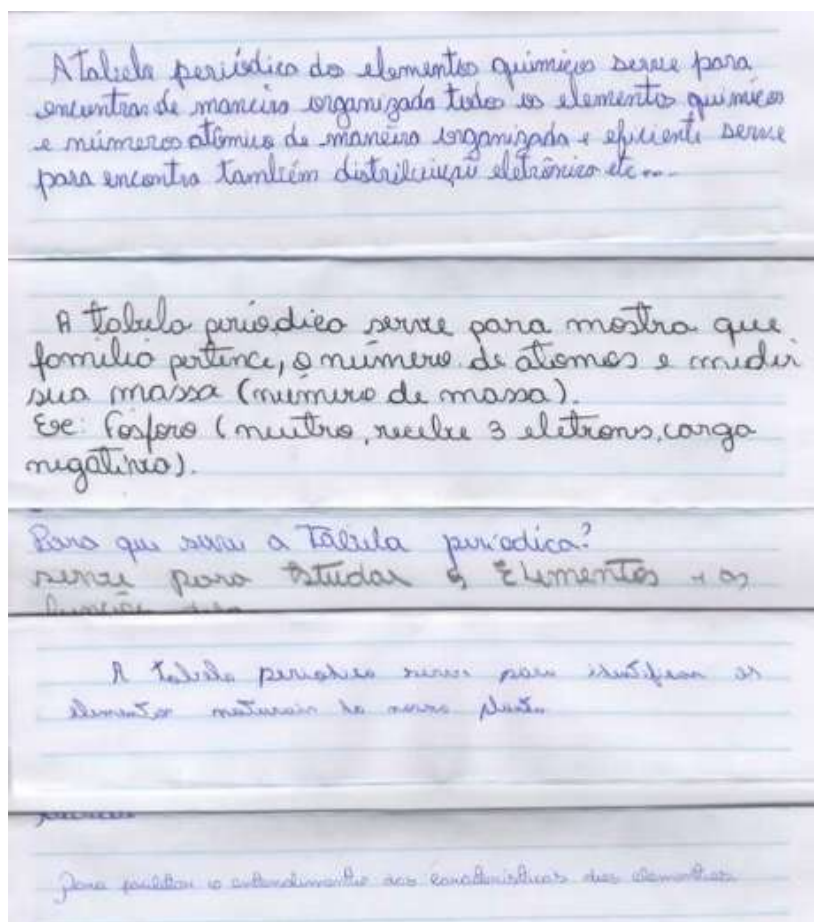 A Tabela periódica do elementos químicos serve para
encontrar de maneira organizada todos os elementos químicos
e números atômico de maneira organizada e eficiente serve
para encontra também distribuição eletrônica etc...
A tabela periodica serve para mostra que
familia pertence, o número de atomos e medir
sua massa (número de massa).
Exe: Fosforo (neutro, recebe 3 eletrons, carga
negativa).
Para que serve a Tabela periodica?
serve para Estudar os Elementos e as
função
A tabela periodica serve para identificar os
elementos naturais do nosso planeta
Para facilitar o entendimento das características dos elementos.